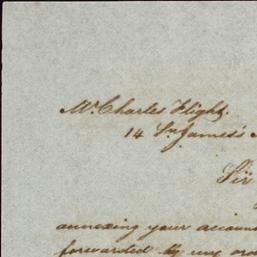 Mr. Charles Flight.
14 St. James's
Sir
annexing your account
forwarded by my